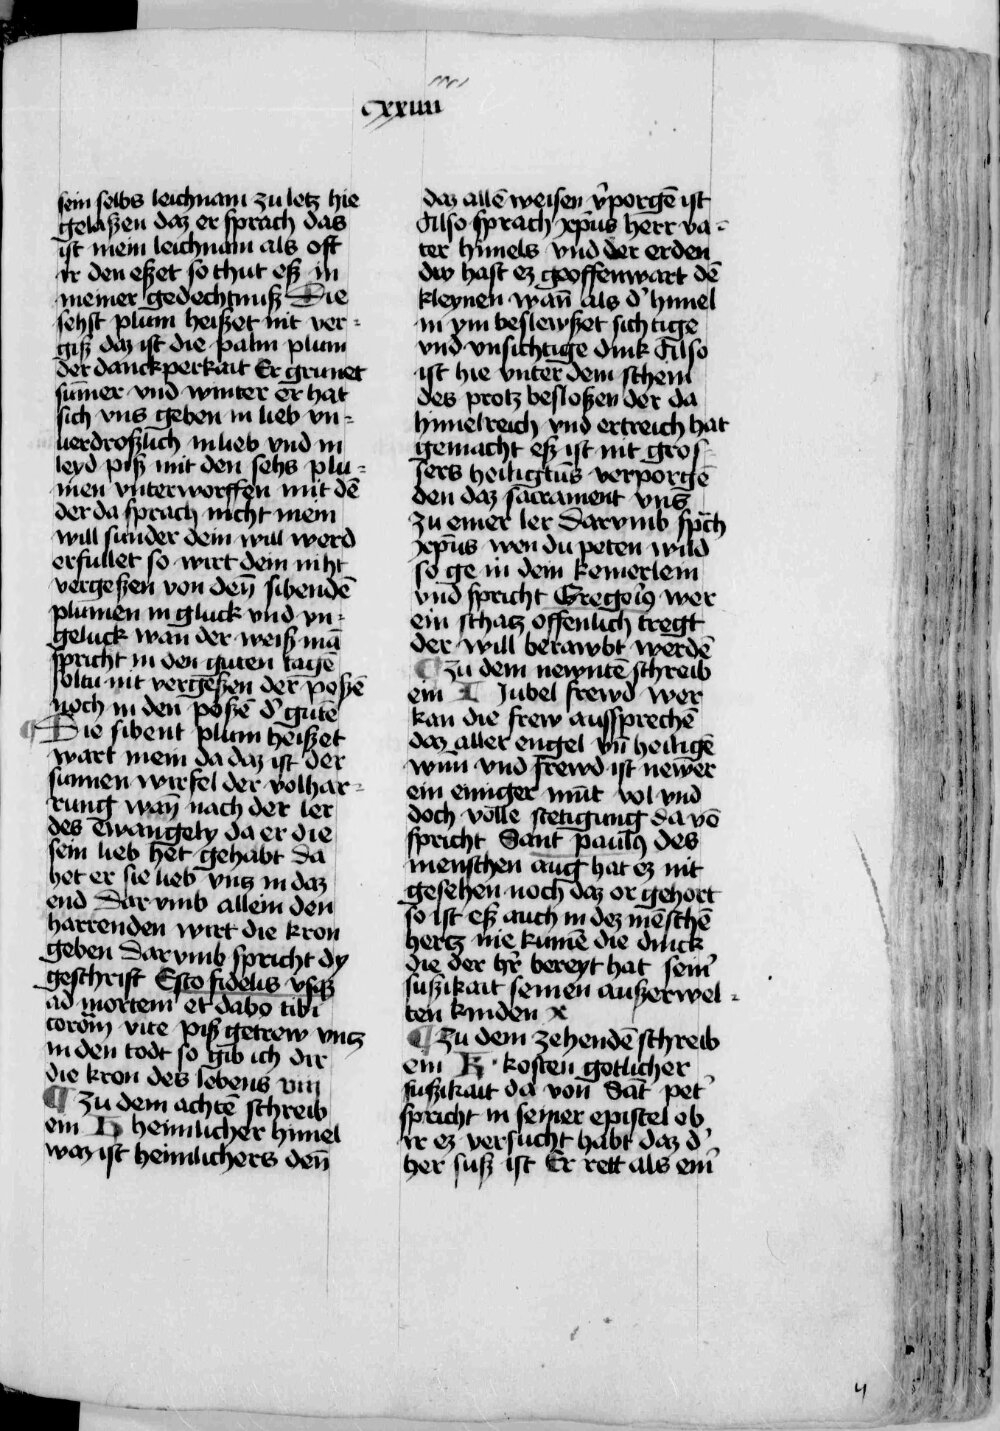 cxxiiii
sein selbs leichnam zu letz hie
gelaßen daz er sprach das
ist mein leichnam als oft
ir den eßet so thut eß in
meiner gedechtnuß Die
sehst plum heißet nit ver-
giß daz ist die palm plum
der danckperkait Er grunet
sum̄er vnd winter er hat
sich vns geben in lieb vn-
uerdroßlich in lieb vnd in
leyd piß mit den sehs plu-
men vnterworffen mit dē
der da sprach nicht mein
will sunder dein will werd
erfullet so wirt dein niht
vergeßen von den̄ sibendē
plumen in gluck vnd vn-
geluck wan der weiß mā
spricht in den guten tagē
soltu nit vergeßen der poßē
noch in den poßē d' gutē
¶ Die sibent plum heißet
wart mein da daz ist der
sunnen wirfel der volhar-
rung wan̄ nach der ler
des ewangely da er die
sein lieb het gehabt da
het er sie lieb vntz in daz
end Dar vmb allein den
harrenden wirt die kron
geben Dar vmb spricht dy
geschrift Esto fidelis vsqz
ad mortem et dabo tibi
coronā vite piß getrew vntz
in den todt so gib ich dir
die kron des lebens viii
¶ Zu dem achtē schreib
ein H heimlicher himel
waz ist heimlichers den̄
daz allē weisen v'porgē ist
Also sprach jhesus herr va-
ter himels vnd der erden
dw hast ez geoffenwart dē
kleynen wan̄ als d' himel
in ym beslewßet sichtige
vnd vnsichtige dink Also
ist hie vnter dem schein
des protz besloßen der da
himelreich vnd ertreich hat
gemacht eß ist nit gros-
sers heiligtūs verporgē
den daz sacrament vns
zu einer ler Darvmb sp̄ch
jhesus wen du peten wild
so ge in dem kemerlein
vnd spricht Gregoriꝰ wer
ein schatz offenlich tregt
der will berawbt werdē
¶ Zu dem newntē schreib
ein I Jubel frewd wer
kan die frew aussprechē
daz aller engel vn̄ heiligē
wun̄ vnd frewd ist newer
ein einiger mūt vol vnd
doch volle stetigung da vō
spricht Sant pauluꝰ des
menschen aug hat ez nit
gesehen noch daz or gehort
so ist eß auch in dez mēschē
hertz nie kumē die dinck
die der h'r bereyt hat sein'
sußikait seinen außerwel-
ten kinden x
¶ Zu dem zehendē schreib
ein K kosten gotlicher
sußikait da von Sāt pet'
spricht in seiner epistel ob
ir ez versucht habt daz d'
her suß ist Er rett als ein'
4